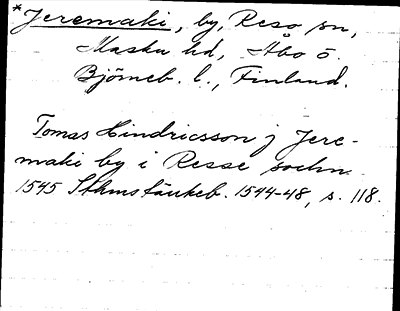 *Jeremaki, by, Reso sn,
Masku hd, Åbo ö.
Björneb. l., Finland.
Tomas Hindricsson j Jere-
maki by i Resse sochn
1545 Sthms tänkeb. 1544-48, s. 118.